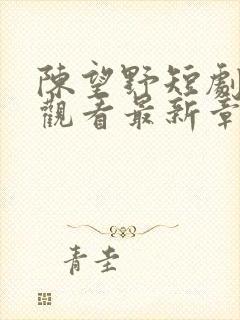 陳望野短劇
觀看最新章
青圭